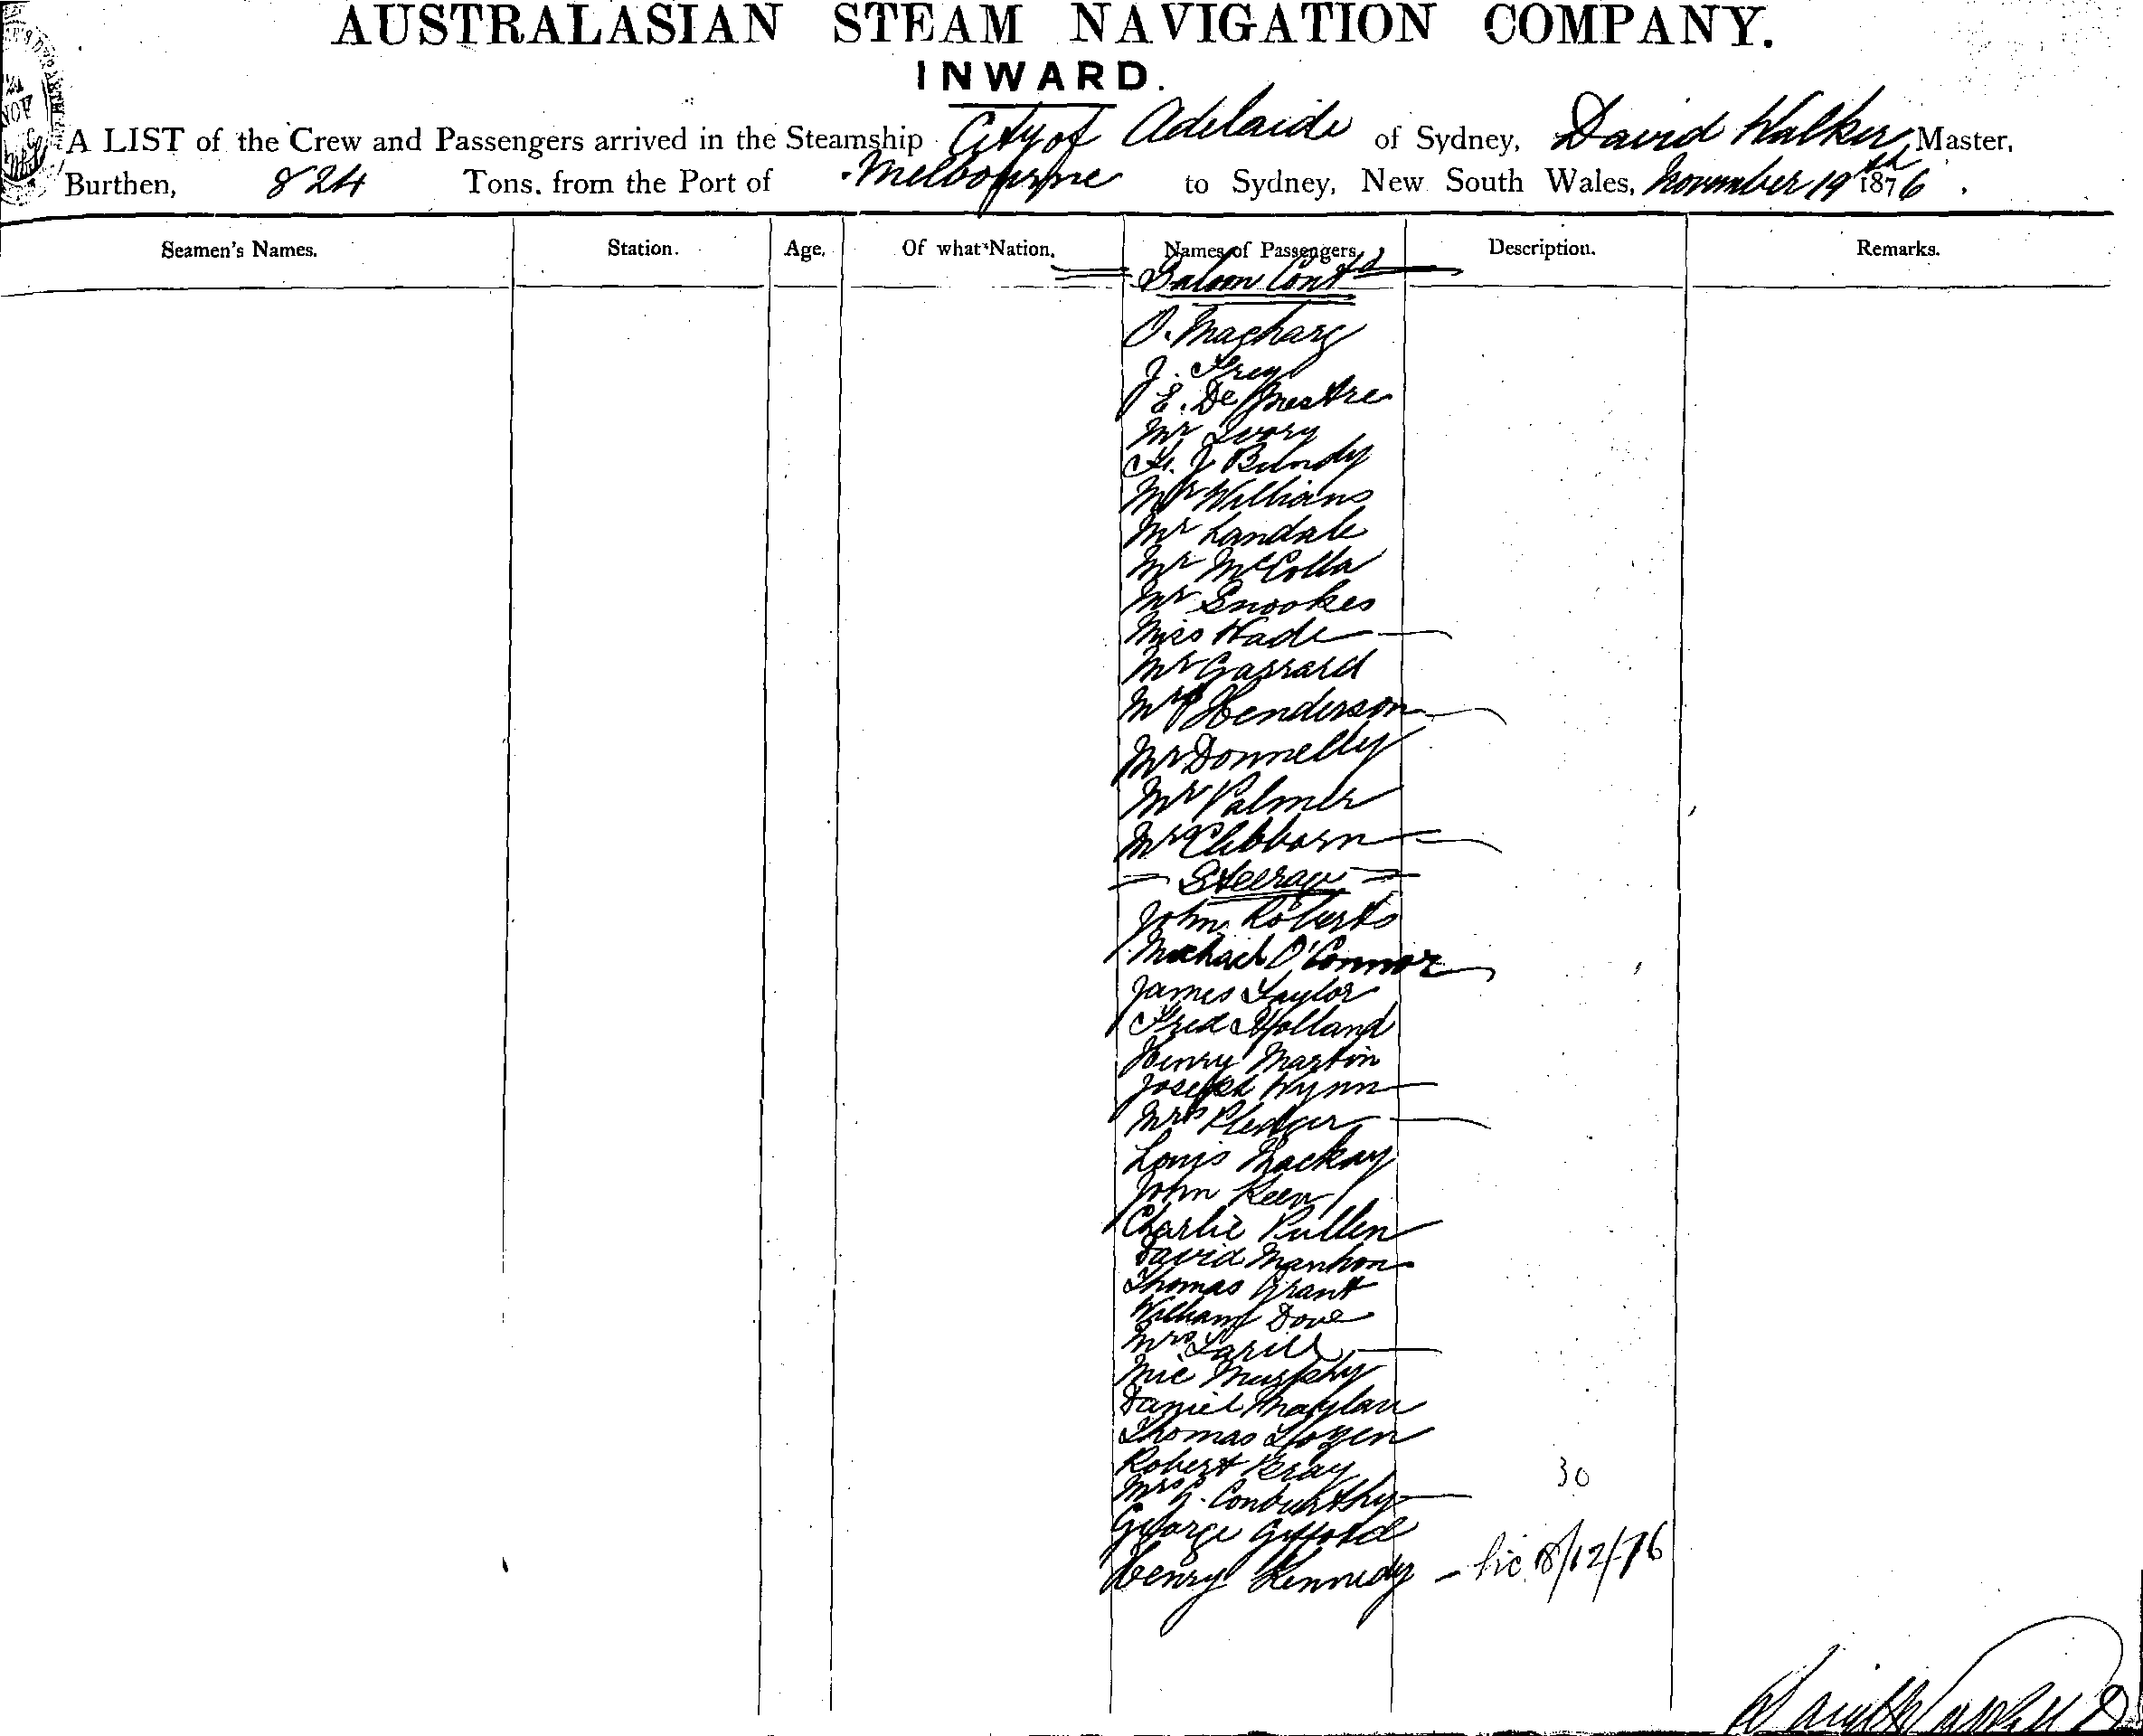 AUSTRALASIAN STEAM NAVIGATION COMPANY.
INWARD.
A LIST of the Crew and Passengers arrived in the Steamship City of Adelaide of Sydney, David Walker Master,
Burthen, 824 Tons. from the Port of Melbourne to Sydney, New South Wales, November 19th 1876.
Seamen's Names. Station. Age. Of what Nation. Names of Passengers Description. Remarks.
Saloon Contd
O. Macharg
J. Frey
E. De Mestre
Mr Ivory
F. J Bundy
Mr Williams
Mr Landale
Mr McColla
Mr Snookes
Miss Wade
Mr Garrard
Mrs Henderson
Mr Donnelly
Mr Palmer
Mrs Clibborn
Steerage
John Roberts
Michael O'Connor
James Taylor
Fred Holland
Henry Martin
Joseph Wynn
Mrs Pledger
Louis Mackay
John Keen
Charlie Pullen
David Manhon
Thomas Grant
William Dove
Mrs
Mic Murphy
Daniel
Thomas
Robert
Mrs
George Gifford
Henry Kennedy 18/12/76
30